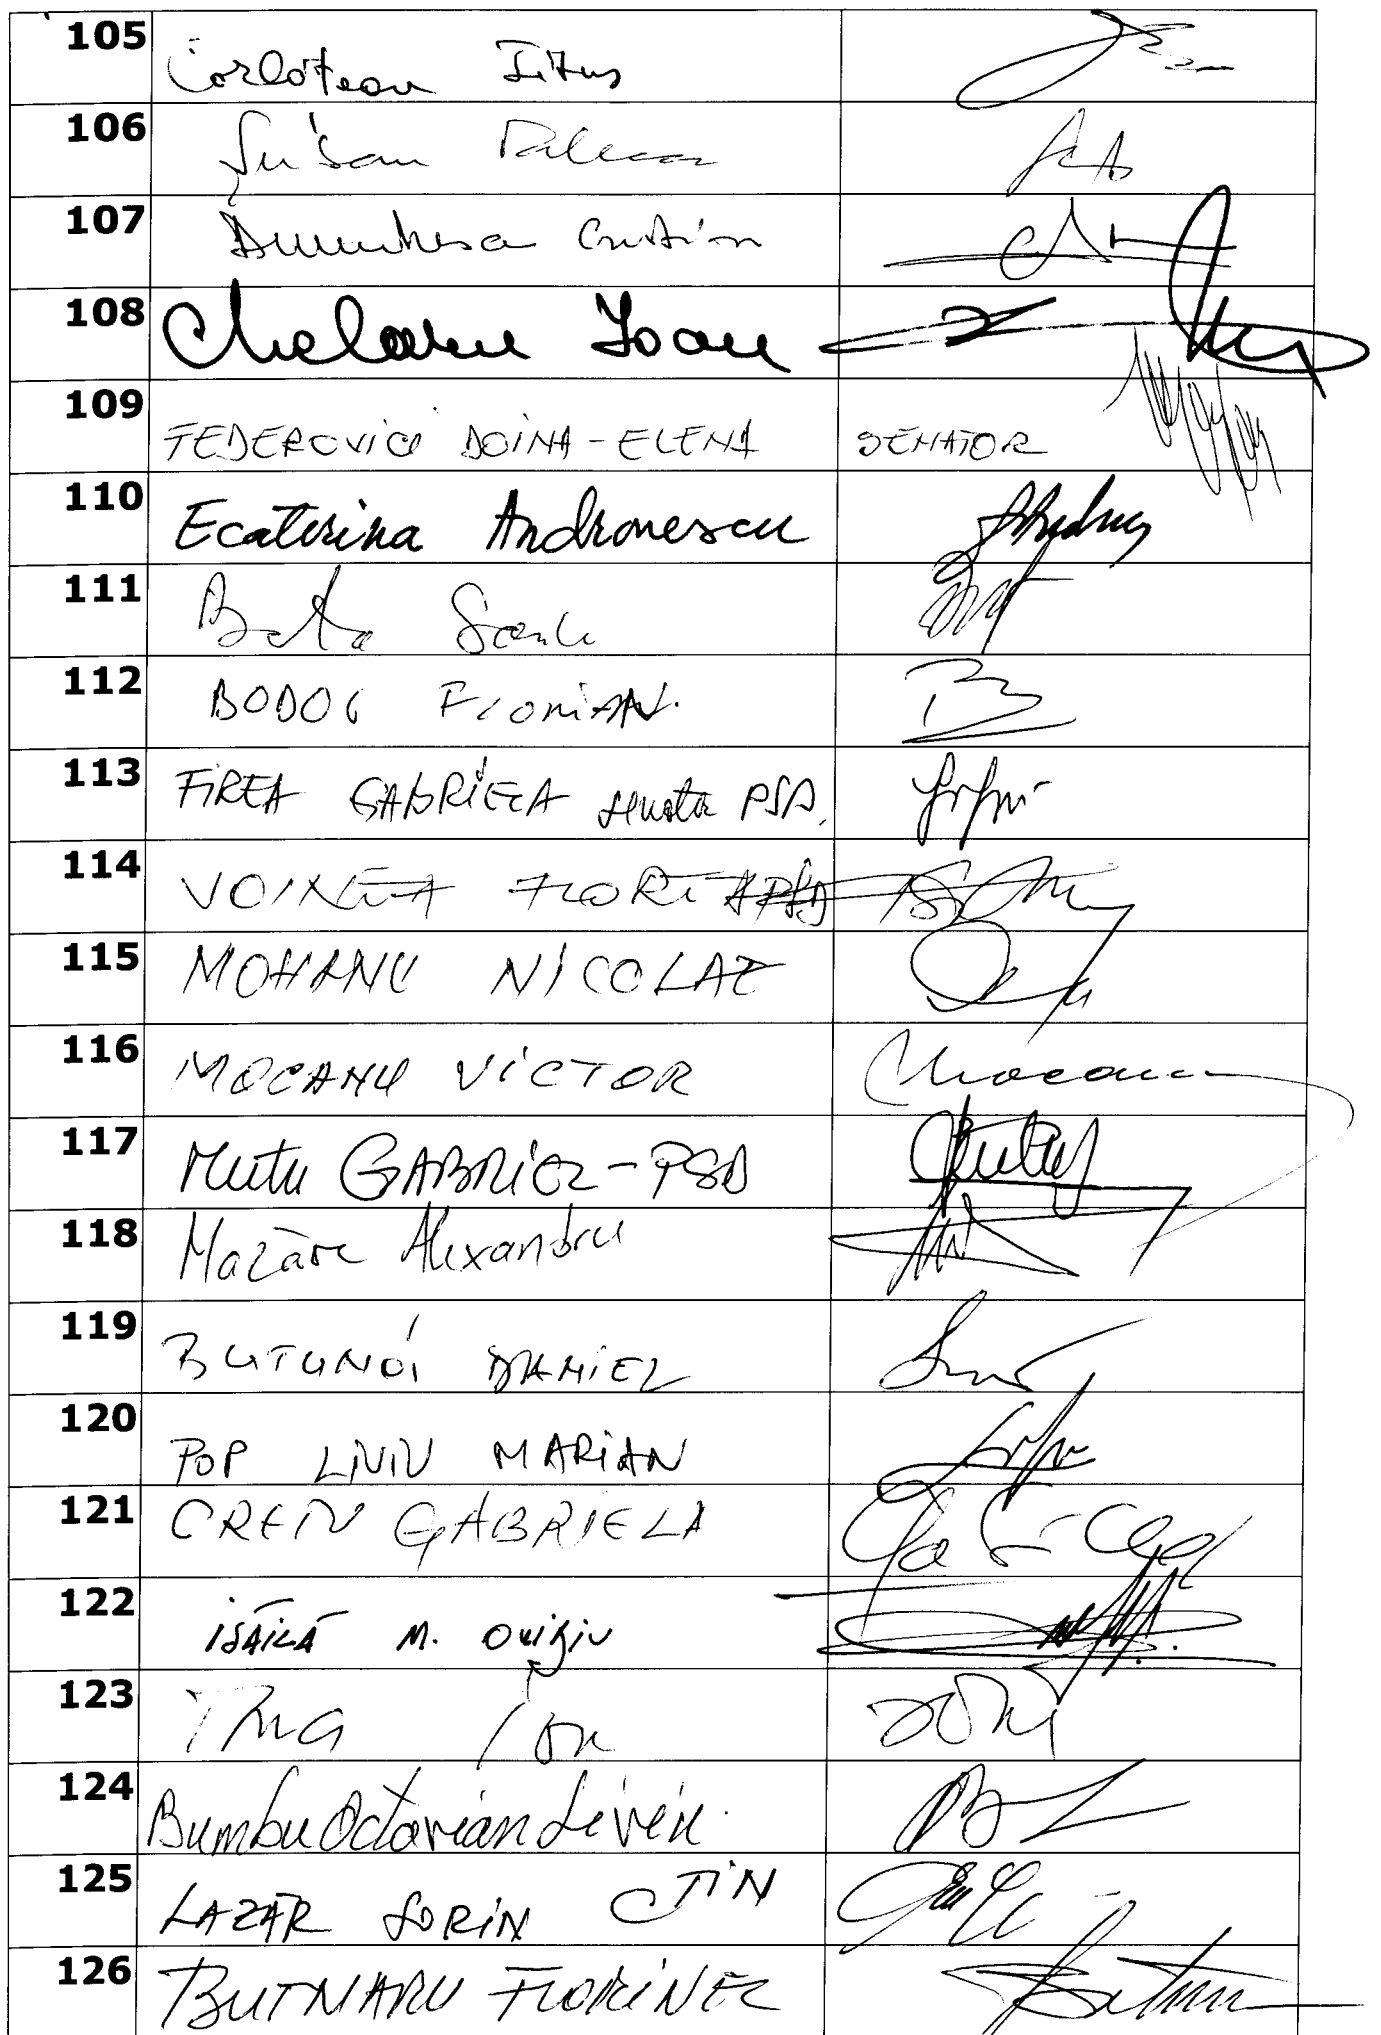 105 Corlățean Titus
106 Șușan
107 Dumitrescu Cristian
108 Chelaru Ioan
109 FEDEROVICI DOINA-ELENA SENATOR
110 Ecaterina Andronescu
111
112 BODOG FLORIAN.
113 FIREA GABRIELA senator PSD.
114 VOINEA FLOREA PSD
115 MOHANU NICOLAE
116 MOCANU VICTOR Mocanu
117 Mutu GABRIEL-PSD
118 Mazăre Alexandru
119 BUTUNOI DANIEL
120 POP LIVIU MARIAN
121 CREȚU GABRIELA
122 ISĂILĂ M. OVIDIU
123 Ion
124 Bumbu Octavian Liviu.
125 LAZĂR SORIN CTIN
126 BUTNARU FLORINEL